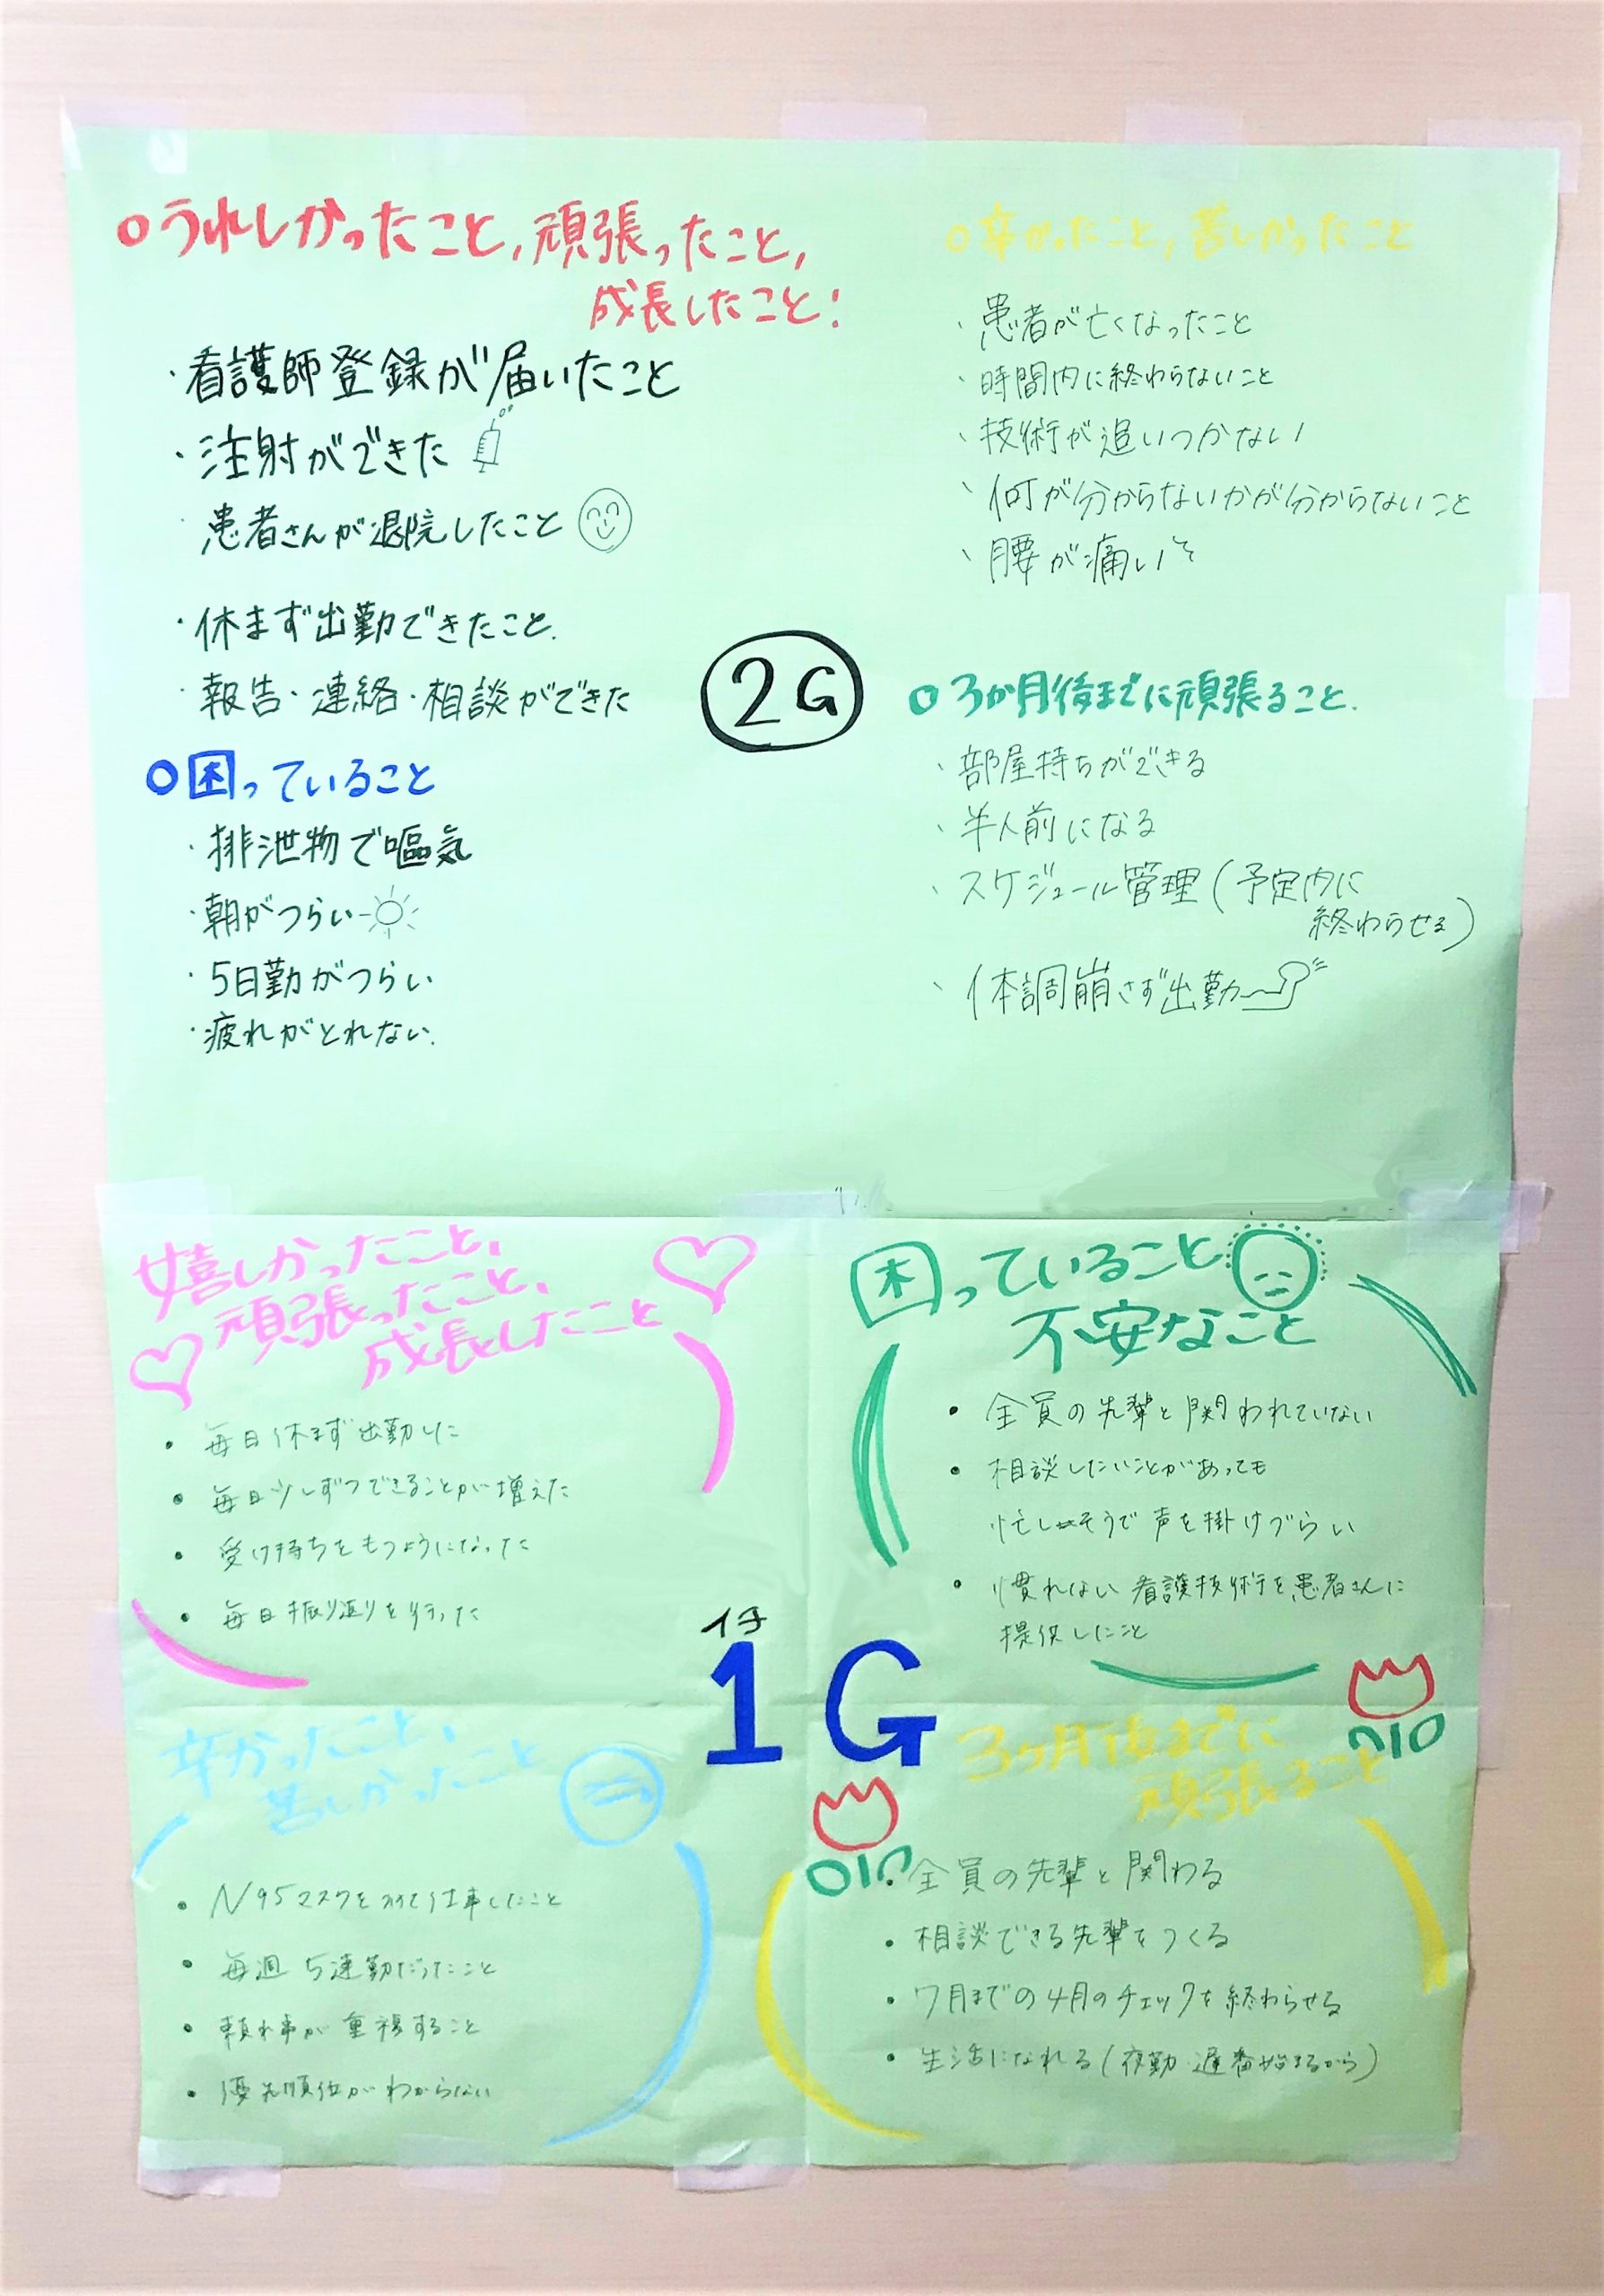 ○うれしかったこと,頑張ったこと,
成長したこと!
・看護師登録が届いたこと
・注射ができた
・患者さんが退院したこと
・休まず出勤できたこと.
・報告・連絡・相談ができた
○困っていること
・排泄物で嘔気
・朝がつらい
・5日勤がつらい
・疲れがとれない.
○辛かったこと,苦しかったこと
・患者が亡くなったこと
・時間内に終わらないこと
・技術が追いつかない
・何が分からないかが分からないこと
・腰が痛い
2G
○3か月後までに頑張ること.
・部屋持ちができる
・半人前になる
・スケジュール管理(予定内に
終わらせる)
・体調崩さず出勤
嬉しかったこと、
頑張ったこと、
成長したこと
・毎日休まず出勤した
・毎日少しずつできることが増えた
・受け持ちをもつようになった
・毎日振り返りを行った
困っていること
不安なこと
・全員の先輩と関われていない
・相談したいことがあっても
忙しそうで声を掛けづらい
・慣れない看護技術を患者さんに
提供したこと
イチ
1G
辛かったこと、
苦しかったこと
・N95マスクをつけて仕事したこと
・毎週5連勤だったこと
・頼れ事が重複すること
・優先順位がわからない
3ヶ月後までに
頑張ること
・全員の先輩と関わる
・相談できる先輩をつくる
・7月までの4月のチェックを終わらせる
・生活になれる(夜勤・遅番始まるから)